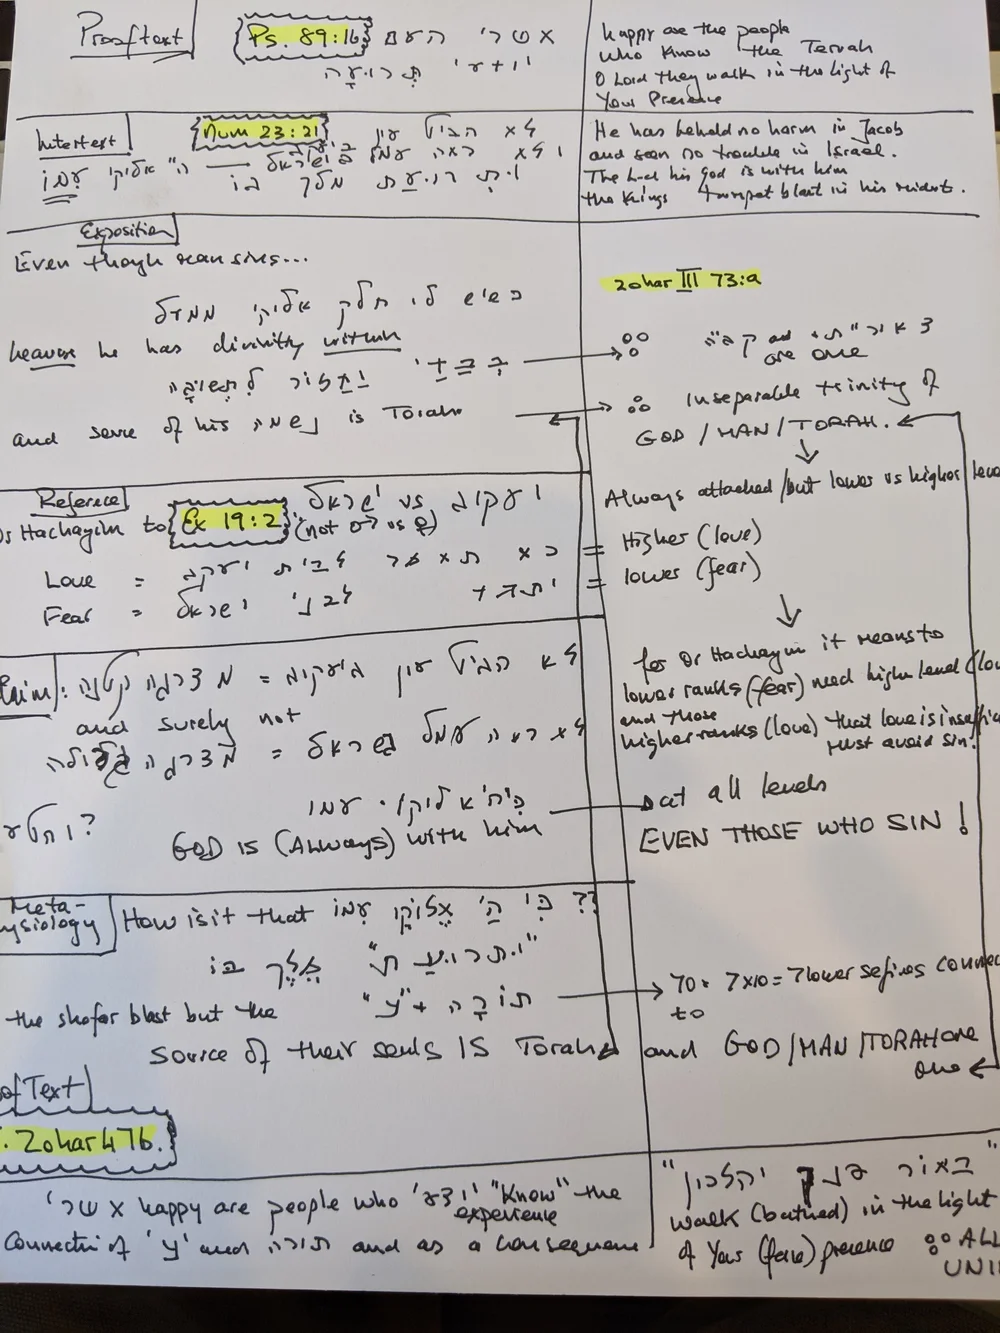 Prooftext
Ps. 89:16 אשרי העם
יודעי תרועה
happy are the people
who know the Teruah
O Lord they walk in the light of
Your Presence
Intertext
Num 23:21 לא הביט און
ביעקב ולא ראה עמל בישראל — ה' אלוקיו עמו
ותרועת מלך בו
He has beheld no harm in Jacob
and seen no trouble in Israel.
The L-d his god is with him
the Kings trumpet blast in his midst.
Exposition
Even though man sins...
כשיש לו חלק אלוקי ממעל
because he has divinity within
לתשובה
and source of his נשמה is Torah
Zohar III 73:a
are one
inseparable trinity of
GOD / MAN / TORAH.
Always attached / but lower vs higher
Reference
Hachayim to Ex 19:2 ישראל vs יעקב
(not ♂ vs ♀)
Love = כה תאמר לבית יעקב = Higher (love)
Fear = לבני ישראל = lower (fear)
for Or Hachayim it means to
lower ranks (fear) need high level
and those
higher ranks (love) that love is
must avoid sin!
לא הביט און ביעקב = מדרגה קטנה
and surely not
לא ראה עמל בישראל = מדרגה גדולה
אלוקיו עמו
GOD IS (ALWAYS) with him
at all levels
EVEN THOSE WHO SIN!
Meta-
ysiology
How is it that ה' אלוקיו עמו ??
"ותרועת" מלך בו
the shofar blast but the תורה + "ע"
70 = 7x10 = 7 lower sefiros
to
source of their souls IS Torah and GOD/MAN/TORAH are
one
of Text
Zohar 47b.
אשרי happy are people who יודעי "Know" the
experience
of 'ע' and תורה and as a consequence
"באור פניך יהלכון"
walk (bathed) in the light
of Your (face) presence ∴ ALL